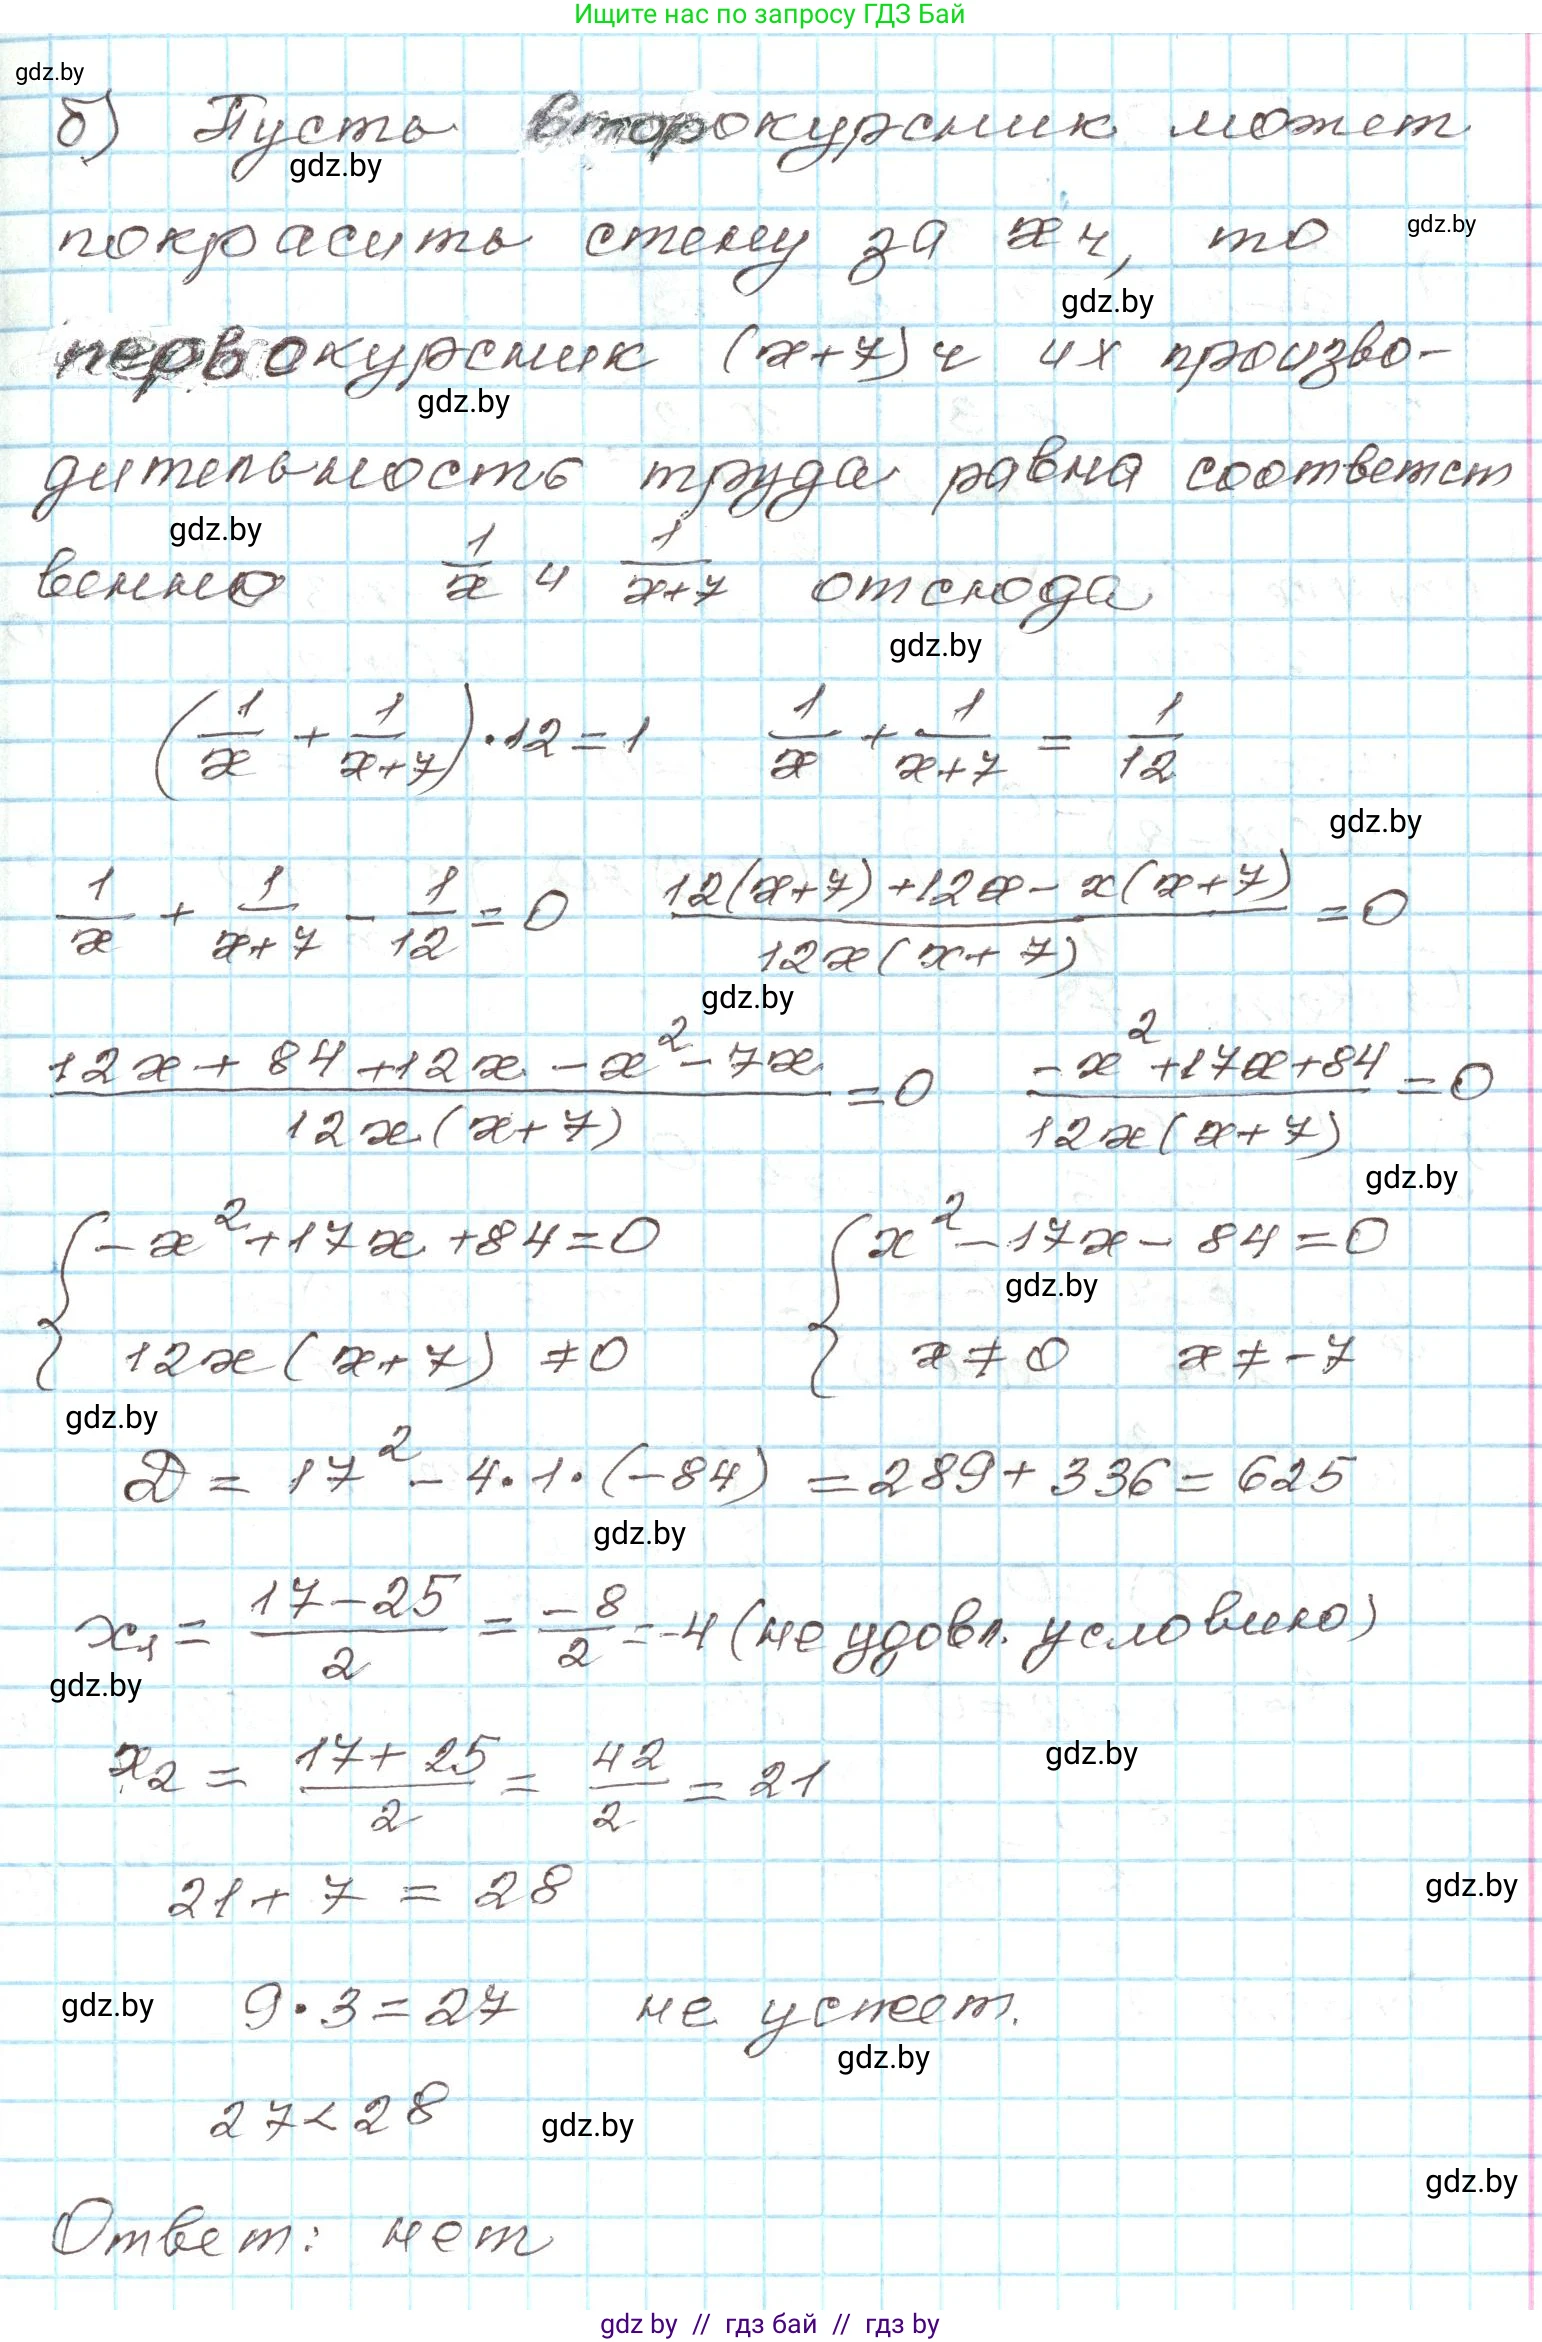 Ищите нас по запросу ГДЗ Бай
gdz.by
б) Пусть второкурсник может
gdz.by
покрасить стену за x ч, то
gdz.by
gdz.by
первокурсник (x+7) ч их произво-
gdz.by
дительность труда равна соответст
gdz.by
венно 1/x и 1/(x+7) отсюда
gdz.by
(1/x + 1/(x+7))·12=1 1/x + 1/(x+7) = 1/12
gdz.by
1/x + 1/(x+7) - 1/12 = 0 (12(x+7)+12x-x(x+7))/(12x(x+7)) = 0
gdz.by
(12x+84+12x-x²-7x)/(12x(x+7)) = 0 (-x²+17x+84)/(12x(x+7)) = 0
gdz.by
{ -x²+17x+84=0 { x²-17x-84=0
gdz.by
12x(x+7) ≠0 x≠0 x≠-7
gdz.by
D = 17² - 4·1·(-84) = 289+336=625
gdz.by
x₁ = (17-25)/2 = -8/2 = -4 (не удовл. условию)
gdz.by
x₂ = (17+25)/2 = 42/2 = 21
gdz.by
21+7 = 28
gdz.by
9·3=27 не успеет.
gdz.by
gdz.by
27<28
gdz.by
gdz.by
Ответ: нет
gdz by // гдз бай // гдз by